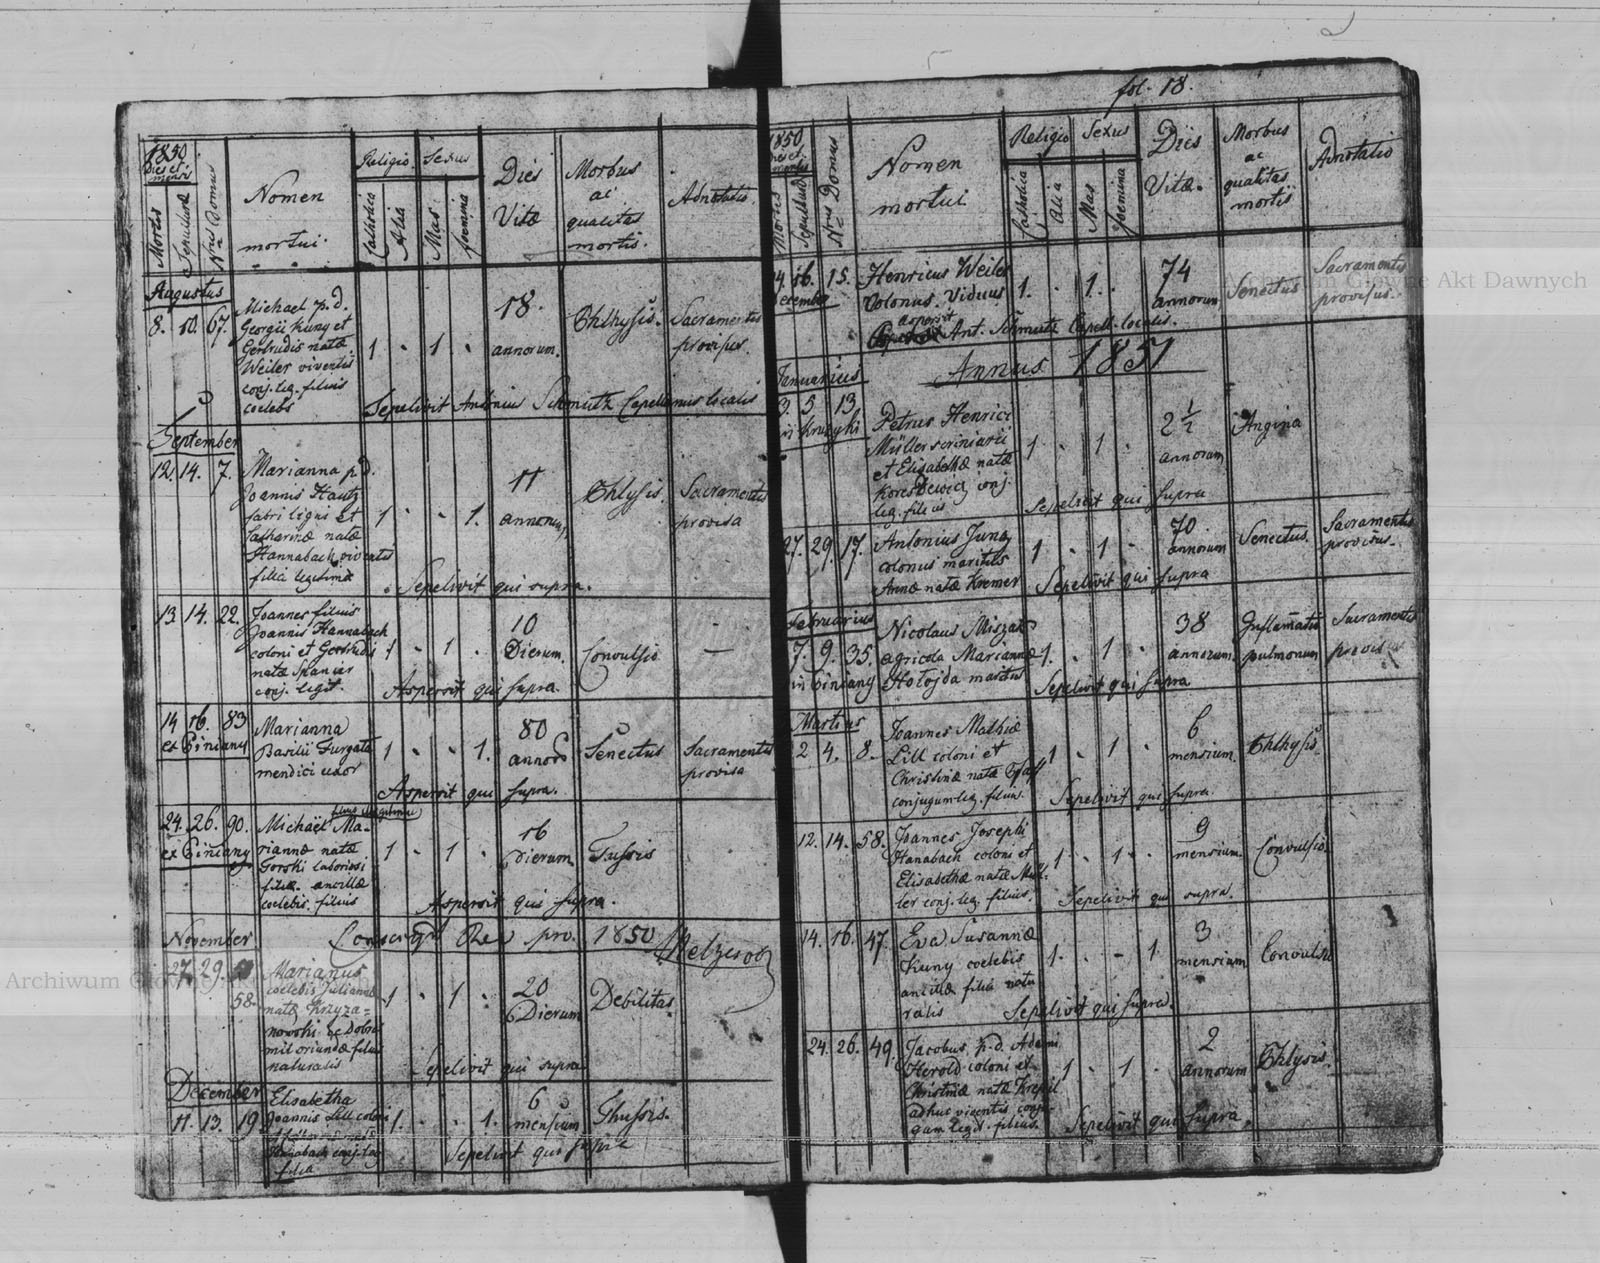 1850
Dies et
mensis
Mortis
Sepulturae
Nrus Domus
Nomen
mortui.
Religio
Catholica
Alia
Sexus
Mas
Foemina
Dies
Vitæ
Morbus
ac
qualitas
mortis.
Adnotatio.
Augustus
8. 10. 67.
Michael p. d.
Georgii Kuny et
Gertrudis natæ
Weiler viventis
conj. leg. filius
coelebs
1 . 1 .
18.
annorum.
Phthysis.
Sacramentis
provisus.
Sepelivit Antonius Schmutz Capellanus localis
September
12. 14. 7.
Marianna p. d.
Joannis Hautz
fabri ligni et
Catharinæ natæ
Hannabach viventis
filia legitima
1 . . 1.
11
annorum
Phtysis.
Sacramentis
provisa
Sepelivit qui supra.
13. 14. 22.
Joannes filius
Joannis Hannabach
coloni et Gertrudis
natæ Spanier
conj. legit.
1 . 1 .
10
Dierum.
Convulsio
—
Aspersit qui supra.
14 16. 83
ex Giniany
Marianna
Basilii Furgata
mendici uxor
1 . . 1.
80
annor
Senectus
Sacramentis
provisa
Aspersit qui supra.
24. 26. 90.
ex Giniany
Michaël Ma-
riannæ natæ
Gorski laboriosi
filiæ ancillæ
coelebis. filius
1 . 1 .
16
Dierum
Tussis
Aspersit qui supra.
November
pro. 1850
27. 29.
58.
Marianus
coelebis Julianæ
natæ Krzyza=
nowski ex Dobro
mil oriundæ filius
naturalis
1 . 1 .
20
Dierum
Debilitas
Sepelivit qui supra
December
11. 13. 19
Elisabetha
Joannis Lill coloni
Hanabach conj. leg
filia
1. . . 1.
6
mensium
Thussis.
Sepelivit qui supra
fol. 18.
1850
Dies et
mensis
Mortis
Sepulturae
Nrus Domus
Nomen
mortui
Religio
Catholica
Alia
Sexus
Mas
Foemina
Dies
Vitæ.
Morbus
ac
qualitas
mortis
Adnotatio
14. 16. 15.
December
Henricus Weiler
Colonus. Viduus
1. . 1. .
74
annorum
Senectus
Sacramentis
provisus.
aspersit
Ant. Schmutz Capell. localis.
Januarius
Annus 1851
3. 5. 13.
Petrus Henrici
Müller scriniarii
et Elisabethæ natæ
conj.
leg. filius
1 . 1 .
2 1/2
annorum
Angina
Sepelivit qui supra
27. 29. 17.
Antonius Jung
colonus maritus
Annæ natæ Kremer
1 . 1 .
70.
annorum
Senectus.
Sacramentis
provisus.
Sepelivit qui supra
Februarius
7. 9. 35.
in Giniany
Nicolaus Miszak
agricola Mariannæ
Hołojda maritus
1. . 1 .
38
annorum.
Inflamatio
pulmonum
Sacramentis
provisus
Sepelivit qui supra
Martius
2 4. 8.
Joannes Mathiæ
Lill coloni et
Christinæ natæ Pfaff
conjugum leg. filius.
1 . 1 .
6
mensium.
Phthysis.
Sepelivit qui supra.
12. 14. 58.
Joannes Josephi
Hanabach coloni et
Elisabethæ natæ Mül-
ler conj. leg. filius.
1 . 1 .
9
mensium.
Convulsio.
Sepelivit qui supra.
14. 16. 47.
Eva Susannæ
Kuny coelebis
ancillæ filia natu
ralis
1. . . 1.
3
mensium
Convulsio
Sepelivit qui supra.
24. 26. 49.
Jacobus p. d. Adami
Herold coloni et
Christinæ natæ Krepil
adhuc viventis conju-
gum legit. filius.
1 . 1 .
2
annorum
Phtysis.
Sepelivit qui supra.
Archiwum Główne Akt Dawnych
Archiwum Główne Akt